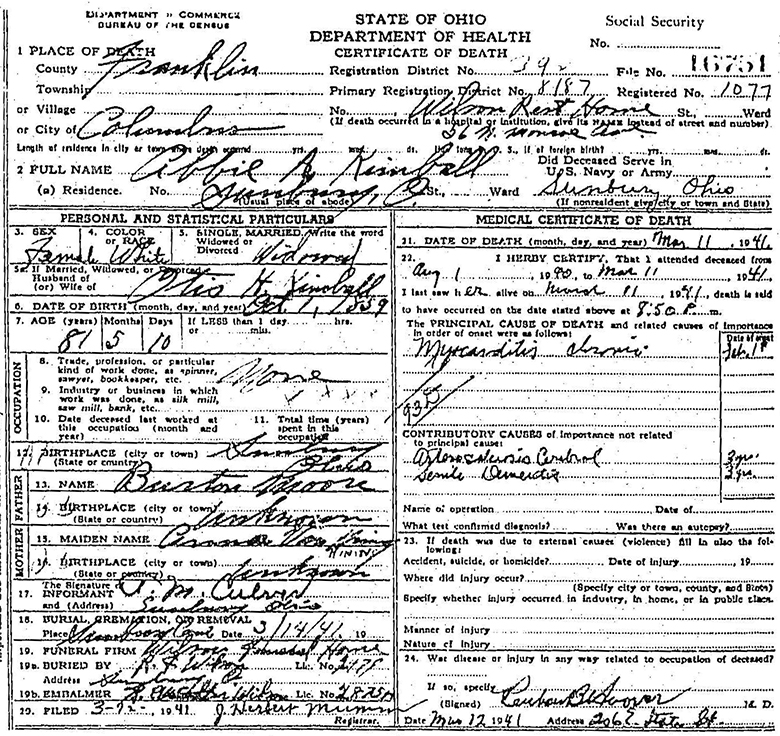 DEPARTMENT OF COMMERCE
BUREAU OF THE CENSUS
STATE OF OHIO
DEPARTMENT OF HEALTH
CERTIFICATE OF DEATH
Social Security
No.
1 PLACE OF DEATH
County Franklin
Registration District No. 392
File No. 16751
Township
Primary Registration District No. 8187
Registered No. 1077
or Village
No. Wilson Rest Home St., Ward
or City of Columbus
(If death occurred in a hospital or institution, give its NAME instead of street and number)
Length of residence in city or town where death occurred yrs. mos. ds. How long in U. S., if of foreign birth? yrs. mos. ds.
2 FULL NAME Abbie A Kimball
Did Deceased Serve in
U. S. Navy or Army
(a) Residence. No. Sunbury, O. St., Ward Sunbury Ohio
(Usual place of abode)
(If nonresident give city or town and State)
PERSONAL AND STATISTICAL PARTICULARS
3. SEX Female
4. COLOR or RACE White
5. SINGLE, MARRIED, Write the word
Widowed or
Divorced Widowed
5a. If Married, Widowed, or Divorced
Husband of
(or) Wife of Otis H. Kimball
6. DATE OF BIRTH (month, day, and year) Oct 1, 1859
7. AGE (years) 81 Months 5 Days 10
If LESS than 1 day hrs.
or min.
OCCUPATION
8. Trade, profession, or particular
kind of work done, as spinner,
sawyer, bookkeeper, etc. None
9. Industry or business in which
work was done, as silk mill,
saw mill, bank, etc.
10. Date deceased last worked at
this occupation (month and
year)
11. Total time (years)
spent in this
occupation
12. BIRTHPLACE (city or town) Sunbury
(State or country) Ohio
FATHER
13. NAME Burton Moore
14. BIRTHPLACE (city or town) Unknown
(State or country)
MOTHER
15. MAIDEN NAME
16. BIRTHPLACE (city or town)
(State or country) Unknown
17. The Signature of
INFORMANT M. Culver
and (Address) Sunbury Ohio
18. BURIAL, CREMATION, OR REMOVAL
Place Date 3/14/41, 19
19. FUNERAL FIRM Wilson Funeral Home
19a. BURIED BY Wilson Lic. No.
Address Sunbury O
19b. EMBALMER Wilson Lic. No.
20. FILED 3-12-, 1941 J Herbert
Registrar.
MEDICAL CERTIFICATE OF DEATH
21. DATE OF DEATH (month, day, and year) Mar 11, 1941
22. I HEREBY CERTIFY, That I attended deceased from
Aug 1, 1940, to Mar 11, 1941
I last saw her alive on March 11, 1941, death is said
to have occurred on the date stated above at 8:50 P. m.
The PRINCIPAL CAUSE OF DEATH and related causes of Importance
in order of onset were as follows:
Date of onset
Myocarditis chronic Feb. 1st
93D
CONTRIBUTORY CAUSES of importance not related
to principal cause:
Arteriosclerosis Cerebral 3 yrs.
Senile Dementia 3 yrs.
Name of operation Date of
What test confirmed diagnosis? Was there an autopsy?
23. If death was due to external causes (violence) fill in also the following:
Accident, suicide, or homicide? Date of injury, 19
Where did injury occur?
(Specify city or town, county, and State)
Specify whether injury occurred in industry, in home, or in public place.
Manner of injury
Nature of injury
24. Was disease or injury in any way related to occupation of deceased?
If so, specify
(Signed) Hoover M. D.
Date Mar 12 1941 Address 206 E. State St.